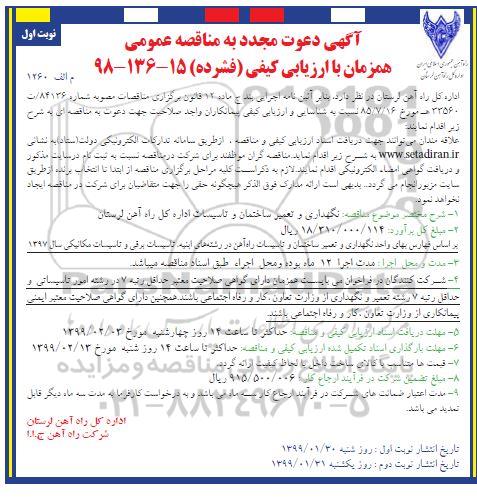 نوبت اول
آگهی دعوت مجدد به مناقصه عمومی
همزمان با ارزیابی کیفی (فشرده) ۱۵-۱۳۶-۹۸
م الف ۱۲۶۰
اداره کل راه آهن لرستان در نظر دارد، بنابر آئین نامه اجرایی بند ج ماده ۱۲ قانون برگزاری مناقصات مصوبه شماره ۸۴۱۳۶/ت
۳۳۵۶۰هـ مورخ ۸۵/۷/۱۶ نسبت به شناسایی و ارزیابی کیفی پیمانکاران واجد صلاحیت جهت دعوت به مناقصه ای به شرح
زیر اقدام نمایند:
علاقه مندان می‌توانند جهت دریافت اسناد ارزیابی کیفی و مناقصه ، ازطریق سامانه تدارکات الکترونیکی دولت(ستاد)به نشانی
www.setadiran.ir به شرح زیر اقدام نماید.مناقصه گران موظفند برای شرکت درمناقصه نسبت به ثبت نام درسایت مذکور
و دریافت گواهی امضاء الکترونیکی اقدام نمایند.لازم به ذکراست کلیه مراحل برگزاری مناقصه از ابتدا تا انتخاب برنده ازطریق
سایت مزبورانجام می گردد.. بدیهی است ارائه مدارک فوق الذکر هیچگونه حقی را جهت متقاضیان برای شرکت در مناقصه ایجاد
نخواهد نمود.
۱- شرح مختصر موضوع مناقصه: نگهداری و تعمیر ساختمان و تاسیسات اداره کل راه آهن لرستان
۲- مبلغ کل برآورد: ۱۸/۳۱۰/۰۰۰/۱۱۴ ریال
بر اساس فهارس بهای واحد نگهداری و تعمیر ساختمان و تاسیسات راه‌آهن در رشته‌های ابنیه، تاسیسات برقی و تاسیسات مکانیکی سال ۱۳۹۷
۳- مدت و محل اجرا: مدت اجرا ۱۲ ماه بوده ومحل اجراء طبق اسناد مناقصه میباشد.
۴- شرکت کنندگان در فراخوان می بایست همزمان دارای گواهی صلاحیت معتبر حداقل رتبه ۷ در رشته امور تاسیساتی و
حداقل رتبه ۷ رشته تعمیر و نگهداری از وزارت تعاون ،کار و رفاه اجتماعی باشند.همچنین دارای گواهی صلاحیت معتبر ایمنی
پیمانکاری از وزارت تعاون ،کار و رفاه اجتماعی باشند
۵- مهلت دریافت اسناد ارزیابی کیفی و مناقصه: حداکثر تا ساعت ۱۴ روز چهارشنبه مورخ ۱۳۹۹/۰۲/۰۳
۶- مهلت بارگذاری اسناد تکمیل شده ارزیابی کیفی و مناقصه: حداکثر تا ساعت ۱۴ روز شنبه مورخ ۱۳۹۹/۰۲/۱۳
۷- قیمت ها متناسب با کالای ساخت داخل با لحاظ کیفیت ارائه گردد.
۸- مبلغ تضمین شرکت در فرآیند ارجاع کار : ۹۱۵/۵۰۰/۰۰۶ ریال
۹- مدت اعتبار ضمانت های شرکت در فرآیند ارجاع کار سه ماه می باشد و به درخواست کارفرما به مدت سه ماه دیگر قابل
تمدید می باشد.
اداره کل راه آهن لرستان
شرکت راه آهن ج.ا.ا
تاریخ انتشار نوبت اول : روز شنبه ۱۳۹۹/۰۱/۳۰
تاریخ انتشار نوبت دوم : روز یکشنبه ۱۳۹۹/۰۱/۳۱
۰۲۱-۸۸۳۴۹۶۷۰-۵